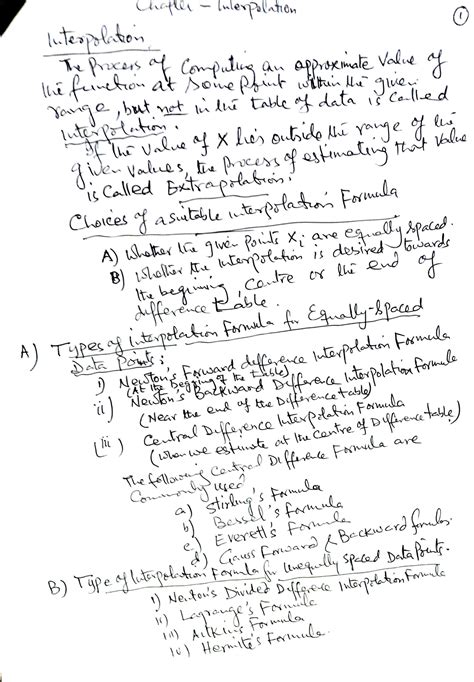 Chapter – Interpolation
1
Interpolation
The Process of Computing an approximate value of
the function at some point within the given
range, but not in the table of data is called
Interpolation.
If the value of X lies outside the range of the
given values, the process of estimating that value
is Called Extrapolation.
Choices of a suitable interpolation Formula
A) Whether the given points Xi are equally spaced.
B) Whether the interpolation is desired towards
the beginning, centre or the end of
difference table.
A) Types of Interpolation Formula for Equally-Spaced
Data Points:
i) Newton's Forward difference Interpolation Formula
(At the Beginning of the table)
ii) Newton's Backward Difference Interpolation Formula
(Near the end of the Difference table)
(iii) Central Difference Interpolation Formula
(when we estimate at the Centre of Difference table.)
The following Central Difference Formula are
Commonly used
a) Stirling's Formula
b) Bessel's Formula
c) Everett's Formula
d) Gauss Forward & Backward formulas.
B) Type of Interpolation Formula for Unequally spaced Data Points.
i) Newton's Divided Difference Interpolation Formula
ii) Lagrange's Formula
iii) Formula
iv) Hermite's Formula.